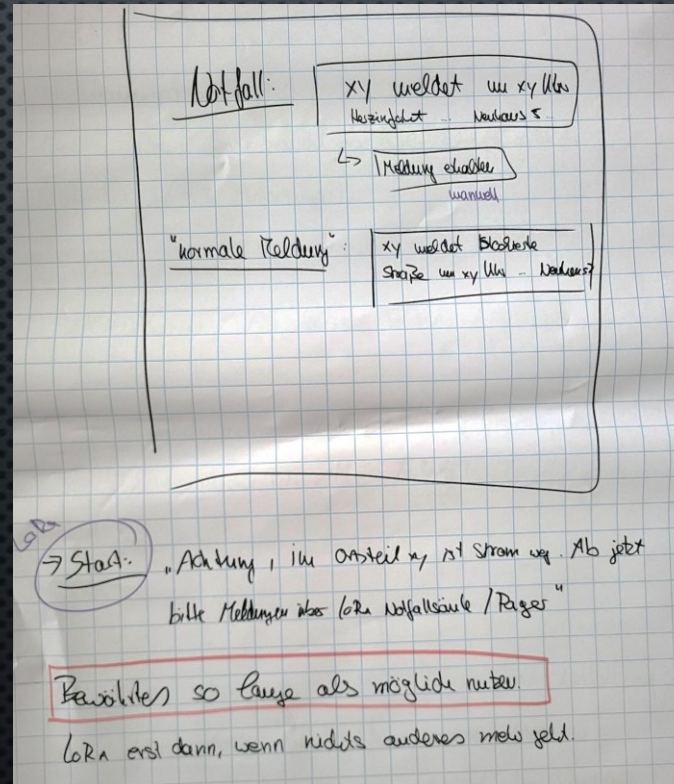 Notfall:
xy meldet um xy Uhr
Herzinfarkt ... Neuhaus 5
Meldung erhalten
manuell
"normale Meldung":
xy meldet blockierte
Straße um xy Uhr ... Neuhaus 7
LoRa
→ Start: „Achtung, im Ortsteil xy ist Strom weg. Ab jetzt
bitte Meldungen über LoRa Notfallsäule / Pager"
Bewährtes so lange als möglich nutzen.
LoRa erst dann, wenn nichts anderes mehr geht.